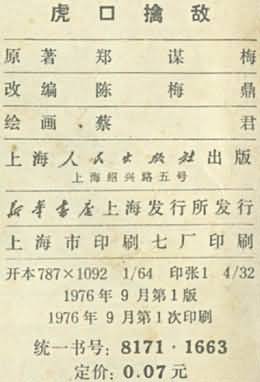 虎口擒敌
原著 郑谋梅
改编 陈梅鼎
绘画 蔡君
上海人民出版社出版
上海绍兴路五号
新华书店上海发行所发行
上海市印刷七厂印刷
开本787×1092 1/64 印张1 4/32
1976年9月第1版
1976年9月第1次印刷
统一书号：8171·1663
定价：0.07元